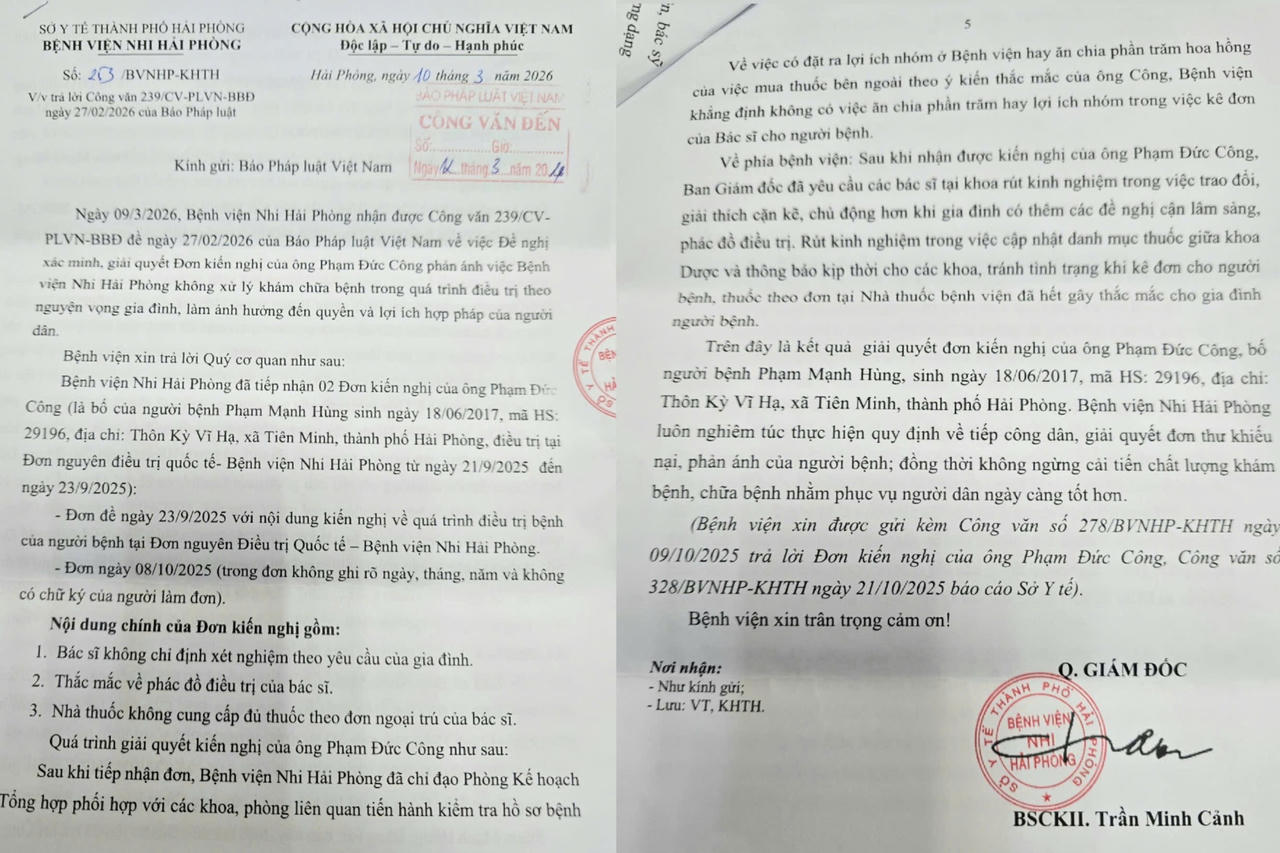 SỞ Y TẾ THÀNH PHỐ HẢI PHÒNG
BỆNH VIỆN NHI HẢI PHÒNG
Số: 253 /BVNHP-KHTH
V/v trả lời Công văn 239/CV-PLVN-BBĐ
ngày 27/02/2026 của Báo Pháp luật
CỘNG HÒA XÃ HỘI CHỦ NGHĨA VIỆT NAM
Độc lập – Tự do – Hạnh phúc
Hải Phòng, ngày 10 tháng 3 năm 2026
BÁO PHÁP LUẬT VIỆT NAM
CÔNG VĂN ĐẾN
Số:..............Giờ:..............
Ngày 12 tháng 3 năm 20
Kính gửi: Báo Pháp luật Việt Nam
Ngày 09/3/2026, Bệnh viện Nhi Hải Phòng nhận được Công văn 239/CV-
PLVN-BBĐ đề ngày 27/02/2026 của Báo Pháp luật Việt Nam về việc Đề nghị
xác minh, giải quyết Đơn kiến nghị của ông Phạm Đức Công phản ánh việc Bệnh
viện Nhi Hải Phòng không xử lý khám chữa bệnh trong quá trình điều trị theo
nguyện vọng gia đình, làm ảnh hưởng đến quyền và lợi ích hợp pháp của người
dân.
Bệnh viện xin trả lời Quý cơ quan như sau:
Bệnh viện Nhi Hải Phòng đã tiếp nhận 02 Đơn kiến nghị của ông Phạm Đức
Công (là bố của người bệnh Phạm Mạnh Hùng sinh ngày 18/06/2017, mã HS:
29196, địa chỉ: Thôn Kỳ Vĩ Hạ, xã Tiên Minh, thành phố Hải Phòng, điều trị tại
Đơn nguyên điều trị quốc tế- Bệnh viện Nhi Hải Phòng từ ngày 21/9/2025 đến
ngày 23/9/2025):
- Đơn đề ngày 23/9/2025 với nội dung kiến nghị về quá trình điều trị bệnh
của người bệnh tại Đơn nguyên Điều trị Quốc tế – Bệnh viện Nhi Hải Phòng.
- Đơn ngày 08/10/2025 (trong đơn không ghi rõ ngày, tháng, năm và không
có chữ ký của người làm đơn).
Nội dung chính của Đơn kiến nghị gồm:
1. Bác sĩ không chỉ định xét nghiệm theo yêu cầu của gia đình.
2. Thắc mắc về phác đồ điều trị của bác sĩ.
3. Nhà thuốc không cung cấp đủ thuốc theo đơn ngoại trú của bác sĩ.
Quá trình giải quyết kiến nghị của ông Phạm Đức Công như sau:
Sau khi tiếp nhận đơn, Bệnh viện Nhi Hải Phòng đã chỉ đạo Phòng Kế hoạch
Tổng hợp phối hợp với các khoa, phòng liên quan tiến hành kiểm tra hồ sơ bệnh
n, bác sỹ
ng dạng
5
Về việc có đặt ra lợi ích nhóm ở Bệnh viện hay ăn chia phần trăm hoa hồng
của việc mua thuốc bên ngoài theo ý kiến thắc mắc của ông Công, Bệnh viện
khẳng định không có việc ăn chia phần trăm hay lợi ích nhóm trong việc kê đơn
của Bác sĩ cho người bệnh.
Về phía bệnh viện: Sau khi nhận được kiến nghị của ông Phạm Đức Công,
Ban Giám đốc đã yêu cầu các bác sĩ tại khoa rút kinh nghiệm trong việc trao đổi,
giải thích cặn kẽ, chủ động hơn khi gia đình có thêm các đề nghị cận lâm sàng,
phác đồ điều trị. Rút kinh nghiệm trong việc cập nhật danh mục thuốc giữa khoa
Dược và thông báo kịp thời cho các khoa, tránh tình trạng khi kê đơn cho người
bệnh, thuốc theo đơn tại Nhà thuốc bệnh viện đã hết gây thắc mắc cho gia đình
người bệnh.
Trên đây là kết quả giải quyết đơn kiến nghị của ông Phạm Đức Công, bố
người bệnh Phạm Mạnh Hùng, sinh ngày 18/06/2017, mã HS: 29196, địa chỉ:
Thôn Kỳ Vĩ Hạ, xã Tiên Minh, thành phố Hải Phòng. Bệnh viện Nhi Hải Phòng
luôn nghiêm túc thực hiện quy định về tiếp công dân, giải quyết đơn thư khiếu
nại, phản ánh của người bệnh; đồng thời không ngừng cải tiến chất lượng khám
bệnh, chữa bệnh nhằm phục vụ người dân ngày càng tốt hơn.
(Bệnh viện xin được gửi kèm Công văn số 278/BVNHP-KHTH ngày
09/10/2025 trả lời Đơn kiến nghị của ông Phạm Đức Công, Công văn số
328/BVNHP-KHTH ngày 21/10/2025 báo cáo Sở Y tế).
Bệnh viện xin trân trọng cảm ơn!
Nơi nhận:
- Như kính gửi;
- Lưu: VT, KHTH.
Q. GIÁM ĐỐC
SỞ Y TẾ THÀNH PHỐ HẢI PHÒNG
BỆNH VIỆN
NHI
HẢI PHÒNG
BSCKII. Trần Minh Cảnh